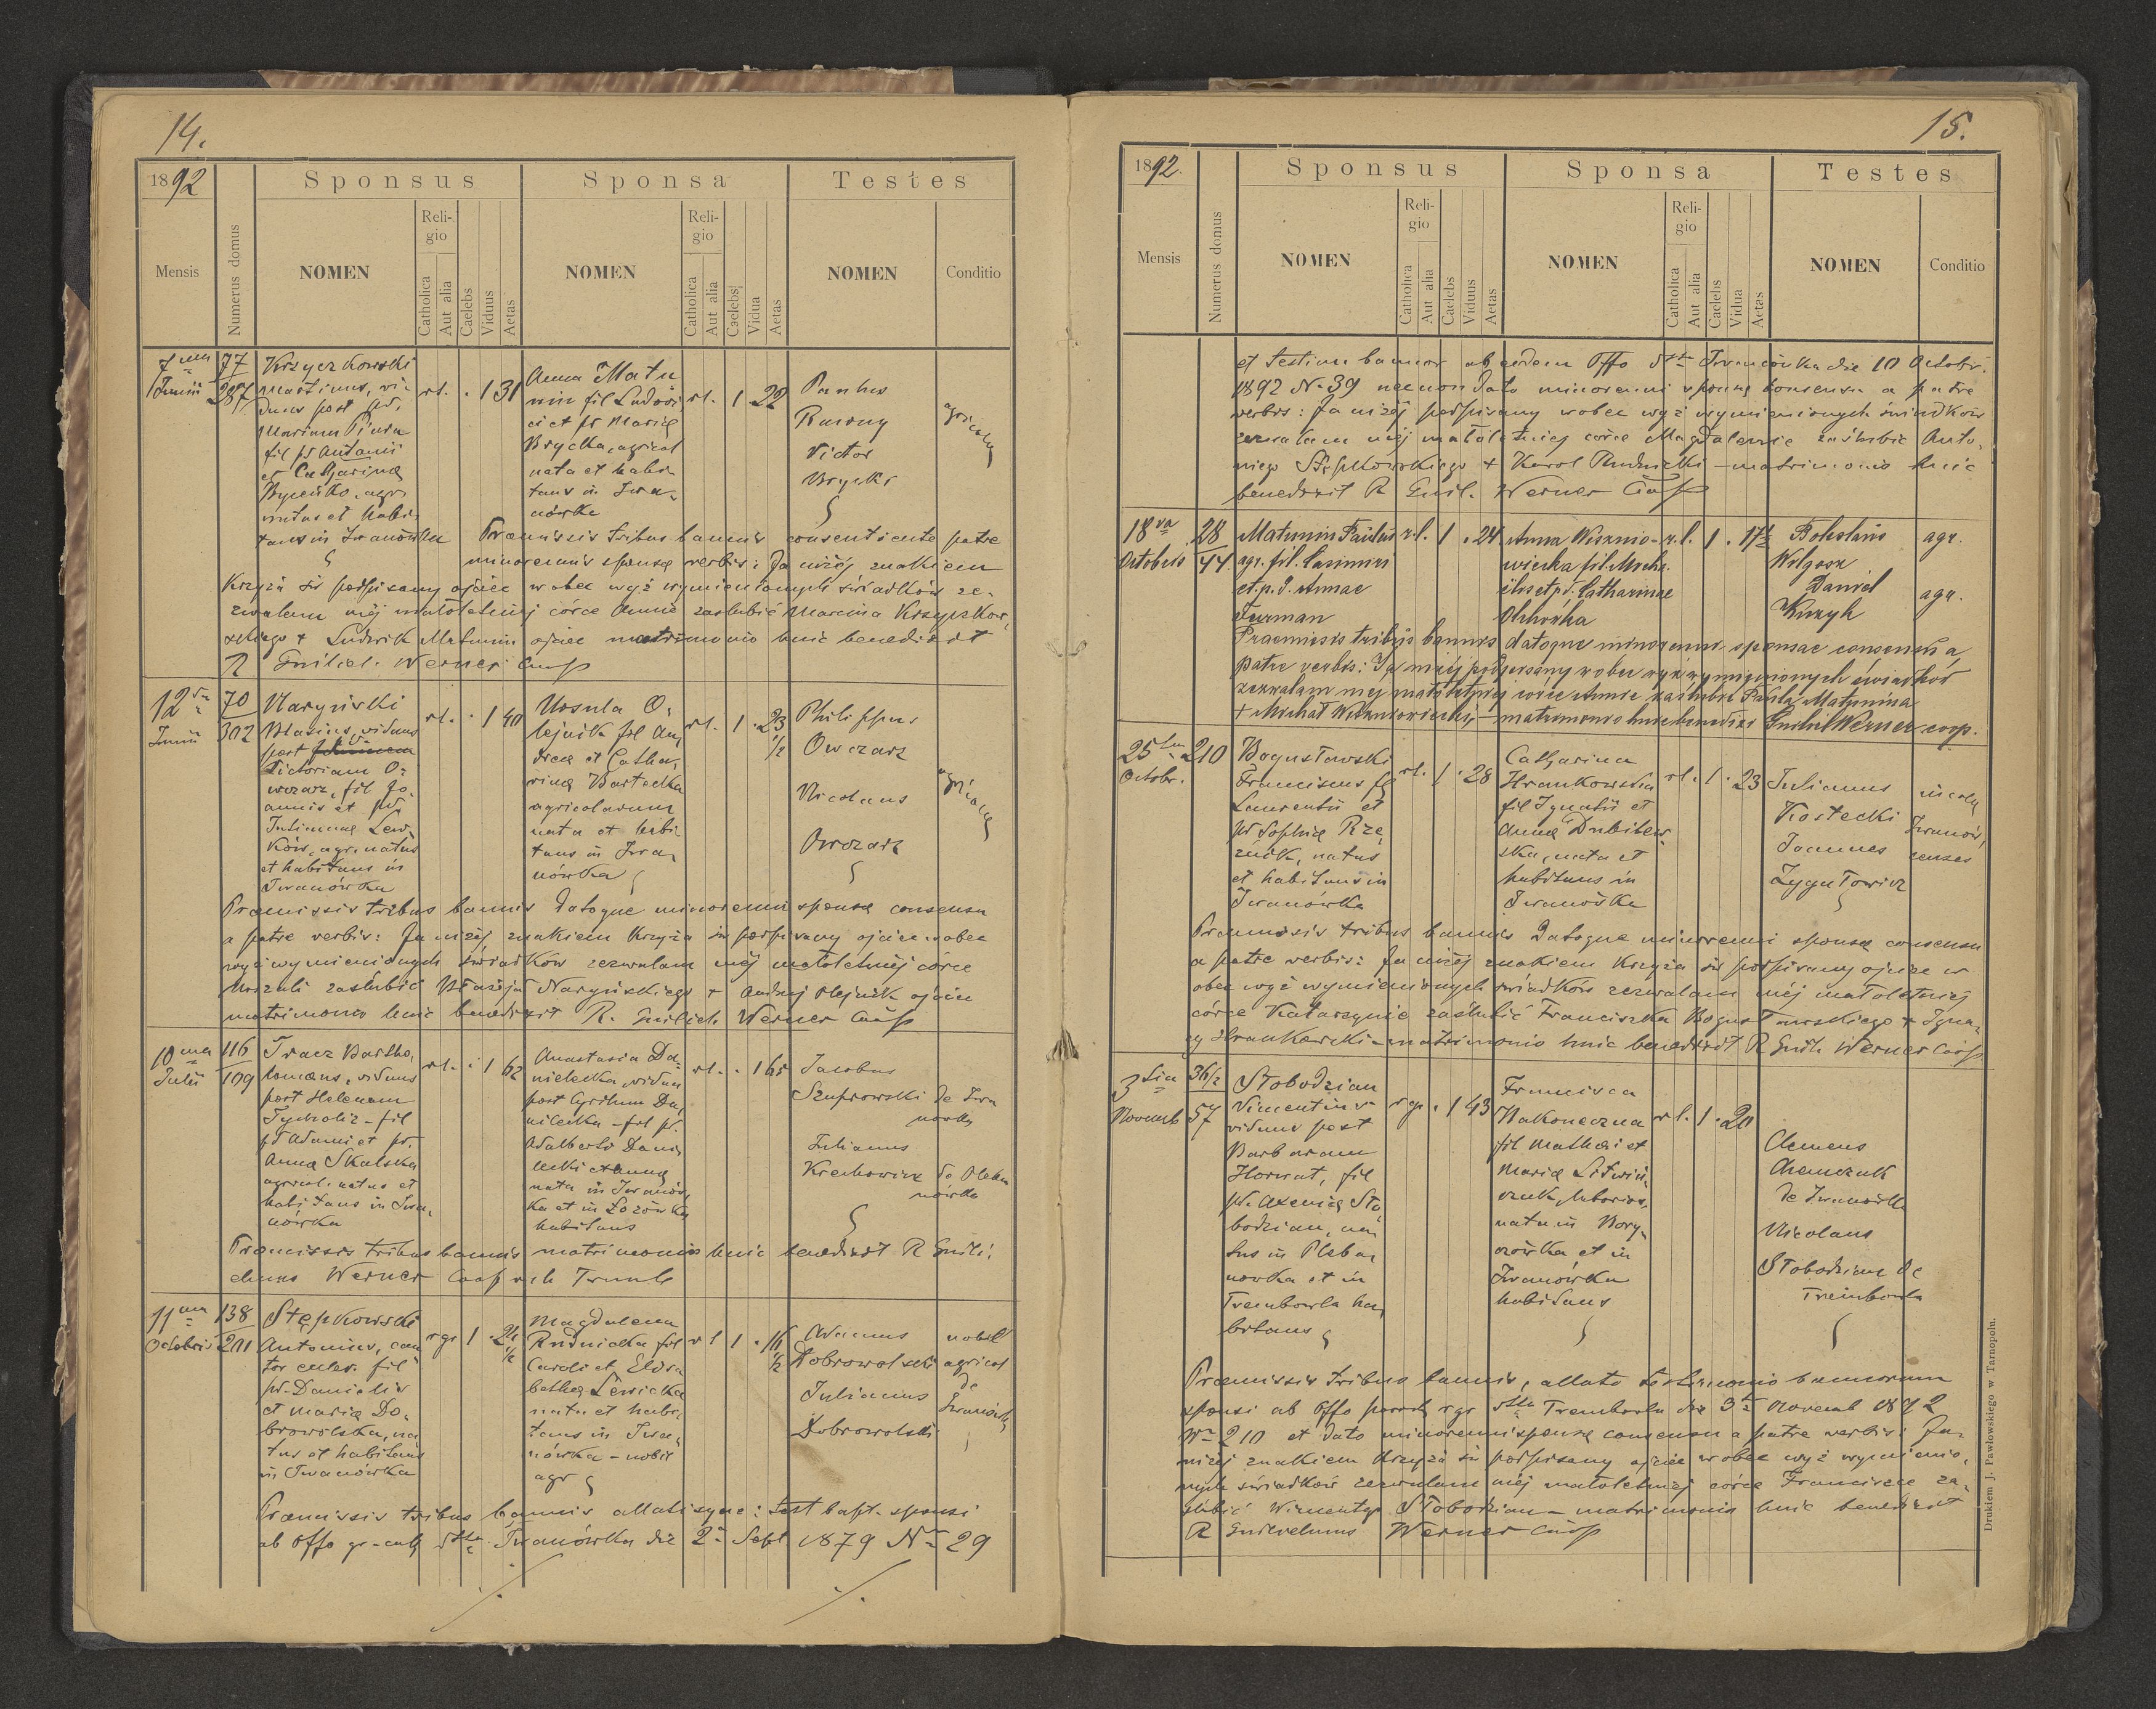 14.
1892
Sponsus
Sponsa
Testes
Mensis
Numerus domus
NOMEN
Religio
Catholica
Aut alia
Caelebs
Viduus
Aetas
NOMEN
Religio
Catholica
Aut alia
Caelebs
Vidua
Aetas
NOMEN
Conditio
7ma
Junii
77
287
Krzyczkowski
Martinus, vi-
duus post pd.
Mariam
fil pd Antonii
et Catharinæ
agr.
natus et habi-
tans in Iwanówka
rl. . 1 31
Anna Matu
nin fil Ludovi
ci et pd Mariæ
Brycka, agricol
nata et habi-
tans in Iwa-
nówka
rl. 1 . 22
Panhus
Victor
Brycki
agricolæ
Præmissis tribus bannis consentiente patre
minorennis sponsæ verbis: Ja niżéj znakiem
Krzyża ś. podpisany ojciec wobec wyż wymienionych świadków ze-
zwalam méj małoletniéj córce Annie zaślubić Marcina Krzyczkow-
skiego + Ludwik Matunin ojciec matrimonio huic benedixit
R Guiliel. Werner Coop
12da
Junii
70
302
Naryński
Blasius, viduus
post
Victoriam O-
wczarz, fil Jo-
annis et pd.
Juliannæ Lew-
ków, agr. natus
et habitans in
Iwanówka
rl. . 1 40
Ursula O-
lejnik fil An-
dreæ et Catha-
rinæ Bartecka
agricolarum
nata et habi-
tans in Iwa-
nówka
rl. 1 . 23 1/2
Philippus
Owczarz
Nicolaus
Owczarz
agricolæ
Præmissis tribus bannis datoque minorenni sponsæ consensu
a patre verbis: Ja niżéj znakiem Krzyża ś. podpisany ojciec wobec
wyż wymienionych świadków zezwalam méj małoletniéj córce
Urszuli zaślubić Błażeja Naryńskiego + Andrzej Olejnik ojciec
matrimonio huic benedixit R. Guilielm Werner Coop
10ma
Julii
116
109
Tracz Bartho-
lomæus, viduus
post Helenam
Tycholiz - fil
pd Adami et pd.
Annæ Skalska
agricol. natus et
habitans in Iwa-
nówka
rl. . 1 62
Anastasia Da-
nielecka, vidua
post Cyrillum Da-
nilecki - fil pd.
Adalberti Dani-
lecki et Annæ
nata in Iwanów-
ka et in Łozówka
habitans
rl. . 1 65
Jacobus
Szuprowski de Iwa
nówka
Julianus
Krechowicz de Pleba
nówka
Præmissis tribus bannis matrimonio huic benedixit R Guili-
elmus Werner Coop
11ma
Octobris
138
201
Stępkowski
Antonius, can
tor eccles. fil
pd. Danielis
et Mariæ Do-
browolska, na
tus et habitans
in Iwanówka
r gr 1 . 24 1/2
Magdalena
Rudnicka fil
Caroli et Elisa
bethæ Lewicka
nata et habi-
tans in Iwa-
nówka - nobil
agr
rl 1 . 16 1/2
Adamus
Dobrowolski
Julianus
Dobrowolski
nobil
agricol
de
Iwanówka
Præmissis tribus bannis allatisque: test bapt. sponsi
ab Offo gr-cath dtto Iwanówka die 2a Sept. 1879 No 29
./.
15.
1892.
Sponsus
Sponsa
Testes
Mensis
Numerus domus
NOMEN
Religio
Catholica
Aut alia
Caelebs
Viduus
Aetas
NOMEN
Religio
Catholica
Aut alia
Caelebs
Vidua
Aetas
NOMEN
Conditio
et testim bannor ab eodem Offo dtto Iwanówka die 10 Octobr.
1892 No 39 necnon dato minorenni sponsæ consensu a patre
verbis: Ja niżéj podpisany wobec wyż wymienionych świadków
zezwalam méj małoletniéj córce Magdalenie zaślubić Anto-
niego Stępkowskiego + Karol Rudnicki - matrimonio huic
benedixit R Guil. Werner Coop
18va
Octobris
28
44
Matunin Paulus
agr. fil. Casimiri
et p. d. Annae
Furman
r.l. 1 . 24
Anna Wiszniow-
wiecka fil. Micha-
elis et pd. Catharinae
Olchówka
r.l. 1 . 17 1/2
Boleslaus
Wilgosz
Daniel
Kuzyk
agr.
agr.
Praemissis tribus bannis datoque minorennis sponsae consensu a
patre verbis: Ja niżéj podpisany wobec wyż wymienionych świadków
zezwalam mej małoletniej córce Annie zaślubić Pawła Matunina
+ Michał Wiszniowiecki - matrimonio huic benedixi Guilel Werner coop.
25ta
Octobr.
210
Bogusławski
Franciscus fil
Laurentii et
pd Sophiæ Rze-
źnik, natus
et habitans in
Iwanówka
rl. 1 . 28
Catharina
Hrankowska
fil Ignatii et
Annæ Dubitew-
ska, nata et
habitans in
Iwanówka
rl. 1 . 23
Julianus
Kostecki
Joannes
Zygułowicz
incolæ
Iwanów-
censes
Præmissis tribus bannis datoque minorenni sponsæ consensu
a patre verbis: Ja niżéj znakiem Krzyża ś. podpisany ojciec w
obec wyż wymienionych świadków zezwalam méj małoletniéj
córce Katarzynie zaślubić Franciszka Bogusławskiego + Igna-
cy Hrankowski - matrimonio huic benedixit R Guil. Werner Coop
3tia
Novemb
36/2
57
Słobodzian
Vincentius
viduus post
Barbaram
Horwat, fil
pd. Axeniæ Sło
bodzian, na-
tus in Pleba-
nówka et in
Trembowla ha-
bitans
r gr . 1 43
Francisca
Nakoneczna
fil Mathæi et
Mariæ Litwin-
czuk, laborios,
nata in Bory-
czówka et in
Iwanówka
habitans
rl. 1 . 20
Clemens
Chemczuk
de Iwanówka
Nicolaus
Słobodzian de
Trembowla
Præmissis tribus bannis, allato testimonio bannorum
sponsi ab Offo paroch r gr dtto Trembowla die 3a Novemb 1892
No 210 et dato minorenni sponsæ consensu a patre verbis: Ja
niżej znakiem Krzyża ś. podpisany ojciec wobec wyż wymienio-
nych świadków zezwalam méj małoletniéj córce Franciszce za-
ślubić Wincentego Słobodzian - matrimonio huic benedixit
R Guilielmus Werner Coop
Drukiem J. Pawłowskiego w Tarnopolu.